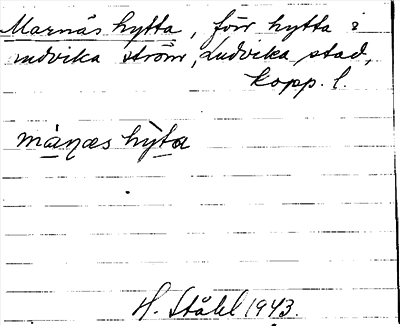 Marnäs hytta, förr hytta i
Ludvika ström, Ludvika stad,
Kopp. l.
månæs hỳta
H. Ståhl 1943.